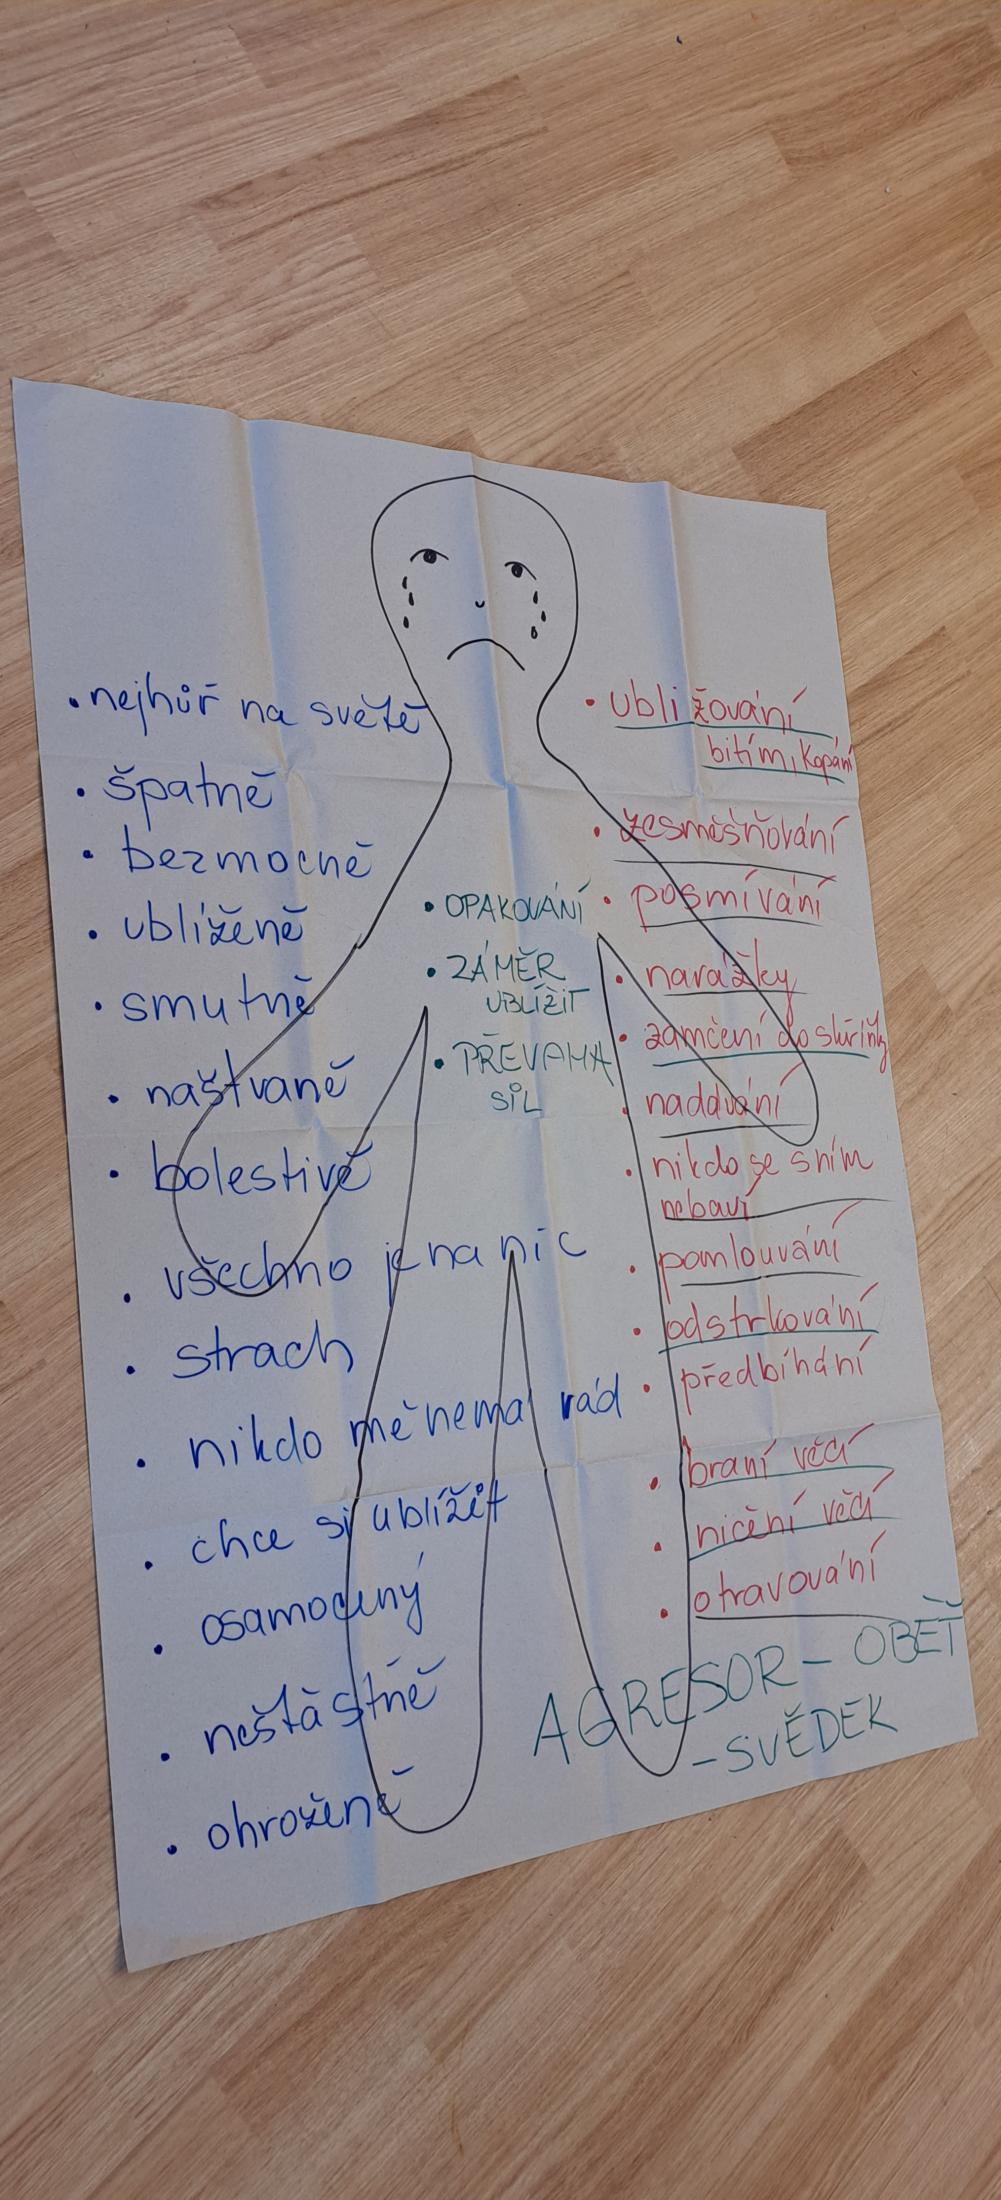 • nejhůř na světě
• špatně
• bezmocně
• ublíženě
• smutně
• naštvaně
• bolestivě
• všechno je na nic
• strach
• nikdo mě nemá rád
• chce si ublížit
• osamocený
• neštástně
• ohroženě
• OPAKOVÁNÍ
• ZÁMĚR
UBLÍŽIT
• PŘEVAHA
SIL
• ubližování
bitím, kopání
• zesměšňování
• posmívání
• narážky
• zamčení do skříňky
• naddvání
• nikdo se sním
nebaví
• pomlouvání
• odstrkování
• předbíhání
• braní věcí
• ničění věcí
• otravování
AGRESOR – OBĚŤ
– SVĚDEK